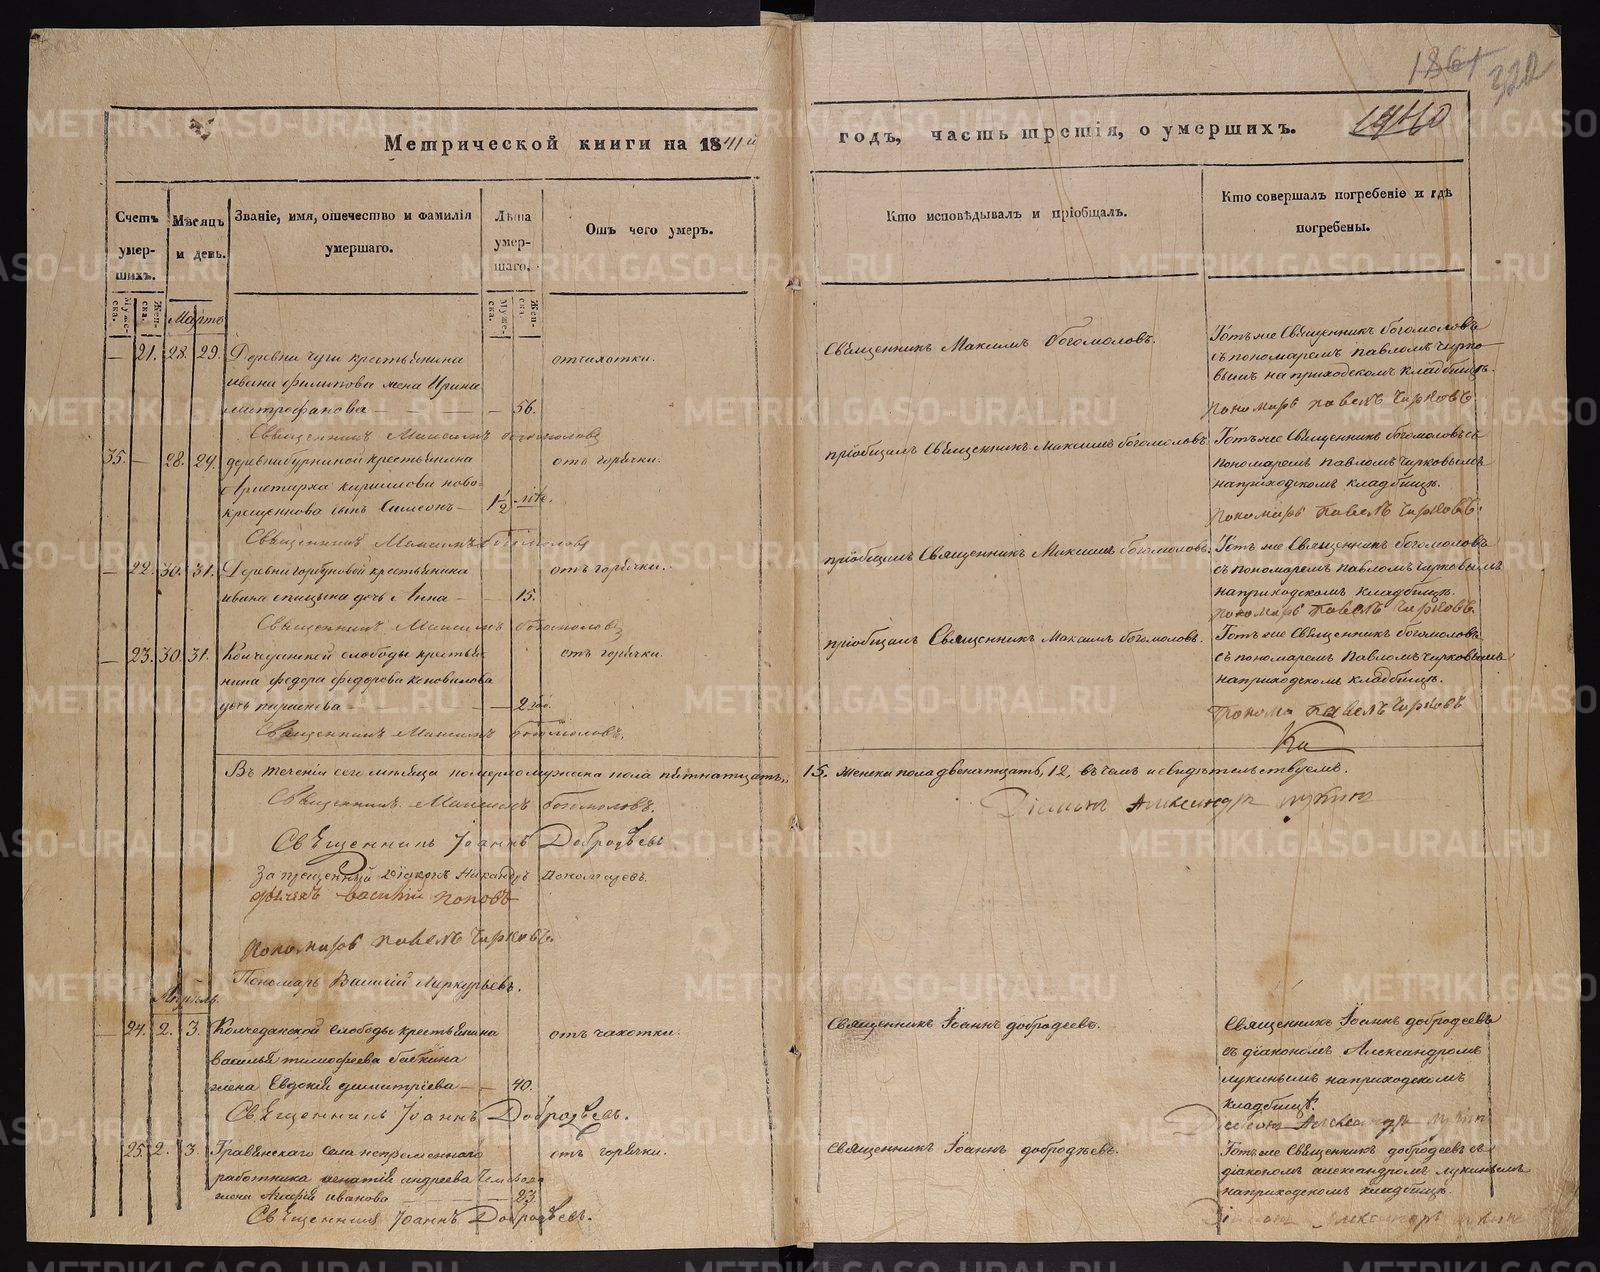 1861
322
1940
Метрической книги на 1841й
годъ, часть третія, о умершихъ.
Счетъ умер-шихъ.
Мѣсяцъ и день.
Званіе, имя, отечество и фамилія умершаго.
Лѣта умер-шаго.
Отъ чего умеръ.
Кто исповѣдывалъ и пріобщалъ.
Кто совершалъ погребеніе и гдѣ погребены.
Муже-ска.
Жен-ска.
Мартъ
Муже-ска.
Жен-ска.
— 21. 28. 29. Деревни крестьянина
ивана филипова жена Ирина
митрофанова — — — 56.
отчахотки.
Священникъ Максимъ богомоловъ.
Тотъ же Священникъ богомоловъ
съ пономаремъ павломъ чирко-
вымъ на приходскомъ кладбищѣ.
пономарь павелъ чирковъ
Священникъ Максимъ богомоловъ
35. — 28. 29. деревни бурниной крестьянина
Аристарха кирилова ново-
крещеннова сынъ Симеонъ — 1 1/2 лѣтъ.
отъ горячки.
пріобщалъ Священникъ Максимъ богомоловъ.
Тотъ же Священникъ богомоловъ съ
пономаремъ павломъ чирковымъ
на приходскомъ кладбищѣ.
пономарь павелъ чирковъ.
Священникъ Максимъ богомоловъ
— 22. 30. 31. Деревни горбуновой крестьянина
ивана спицына дочь Анна — — 15.
отъ горячки.
пріобщалъ Священникъ Максимъ богомоловъ.
Тотъ же Священникъ богомоловъ
съ пономаремъ павломъ чирковымъ
на приходскомъ кладбищѣ.
пономарь павелъ чирковъ.
Священникъ Максимъ богомоловъ
— 23. 30. 31. Колчеданской слободы крестья-
нина федора федорова коновалова
дочь — — 2 год.
отъ горячки.
пріобщалъ Священникъ Максимъ богомоловъ.
Тотъ же Священникъ богомоловъ
съ пономаремъ павломъ чирковымъ
на приходскомъ кладбищѣ.
павелъ чирковъ
Священникъ Максимъ богомоловъ.
Въ теченіи сего мѣсяца померло мужска пола пятнатцать,, 15. женска пола двенатцать, 12, въ чемъ и свидѣтельствуемъ.
Священникъ Максимъ богомоловъ.
Діаконъ Александръ лукинъ
Священникъ Іоаннъ Добродѣевъ
Запрещенный діаконъ Никандръ Пономаревъ.
дьячекъ василій поповъ
Пономарь павелъ чирковъ.
Пономарь Василій Меркурьевъ.
Апрѣль.
— 24. 2. 3. Колчеданской слободы крестьянина
василья тимофеева бабкина
жена Евдокія димитріева — — 40.
отъ чахотки.
Священникъ Іоаннъ добродеевъ.
Священникъ Іоаннъ добродеевъ
съ діакономъ Александромъ
лукинымъ на приходскомъ
кладбищѣ.
Діаконъ Александръ лукинъ
Священникъ Іоаннъ Добродѣевъ.
25. 2. 3. села непременнаго
работника игнатія андреева
жена иванова — — 23
отъ горячки.
Священникъ Іоаннъ добродѣевъ.
Тотъ же Священникъ добродеевъ съ
діакономъ александромъ лукинымъ
на приходскомъ кладбищѣ.
Діаконъ Александръ лукинъ
Священникъ Іоаннъ Добродѣевъ.
METRIKI.GASO-URAL.RU